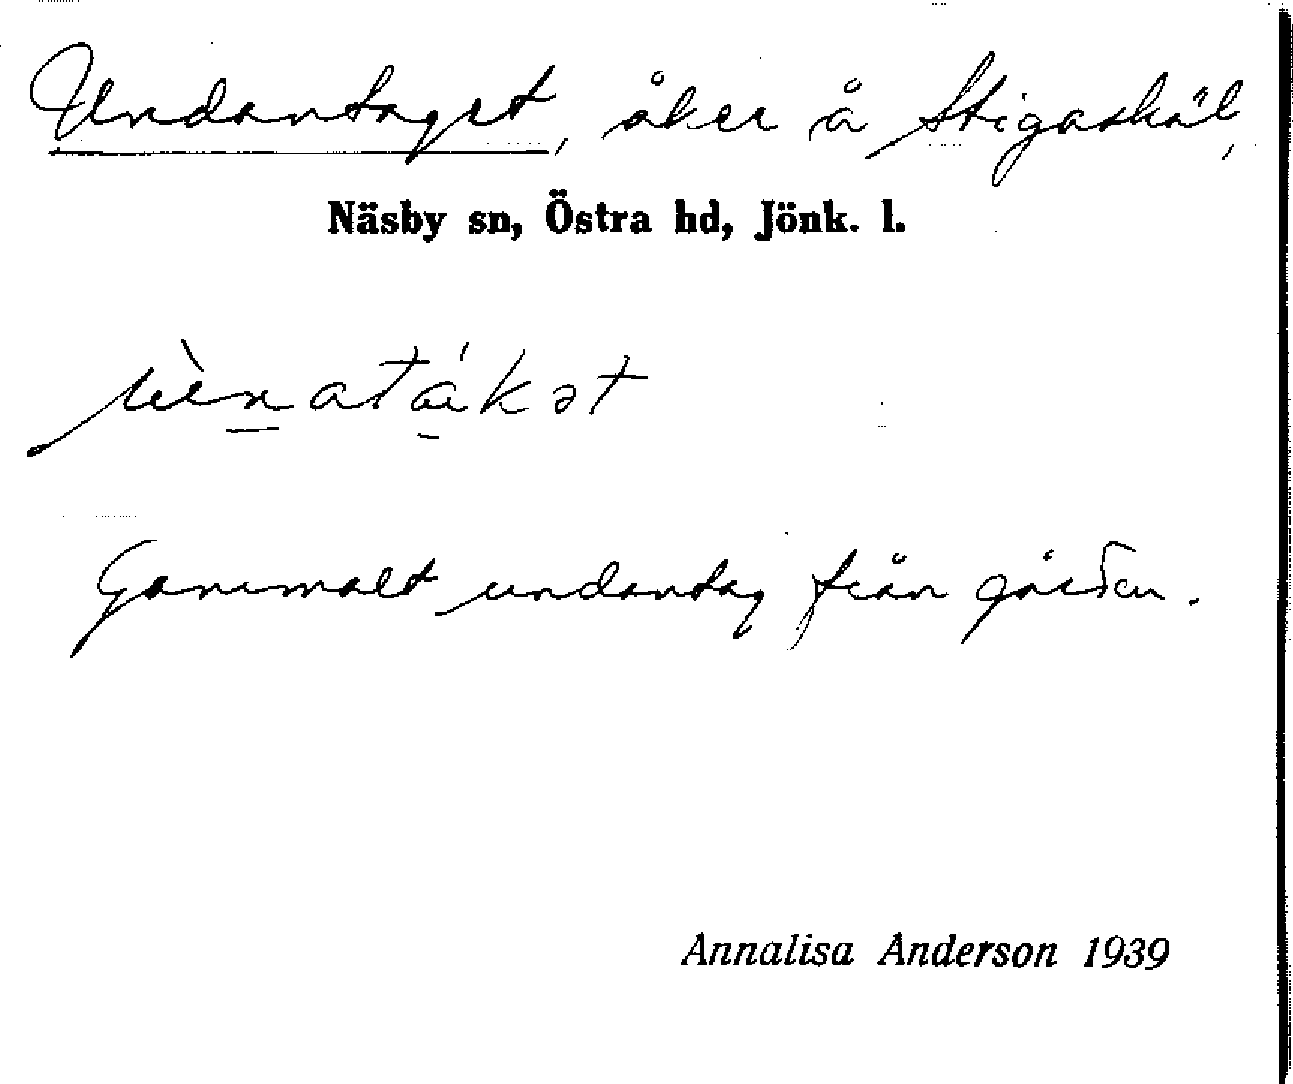 Undantaget, åker å Stigaskäl,
Näsby sn, Östra hd, Jönk. l.
Gammalt undantag från gården.
Annalisa Anderson 1939